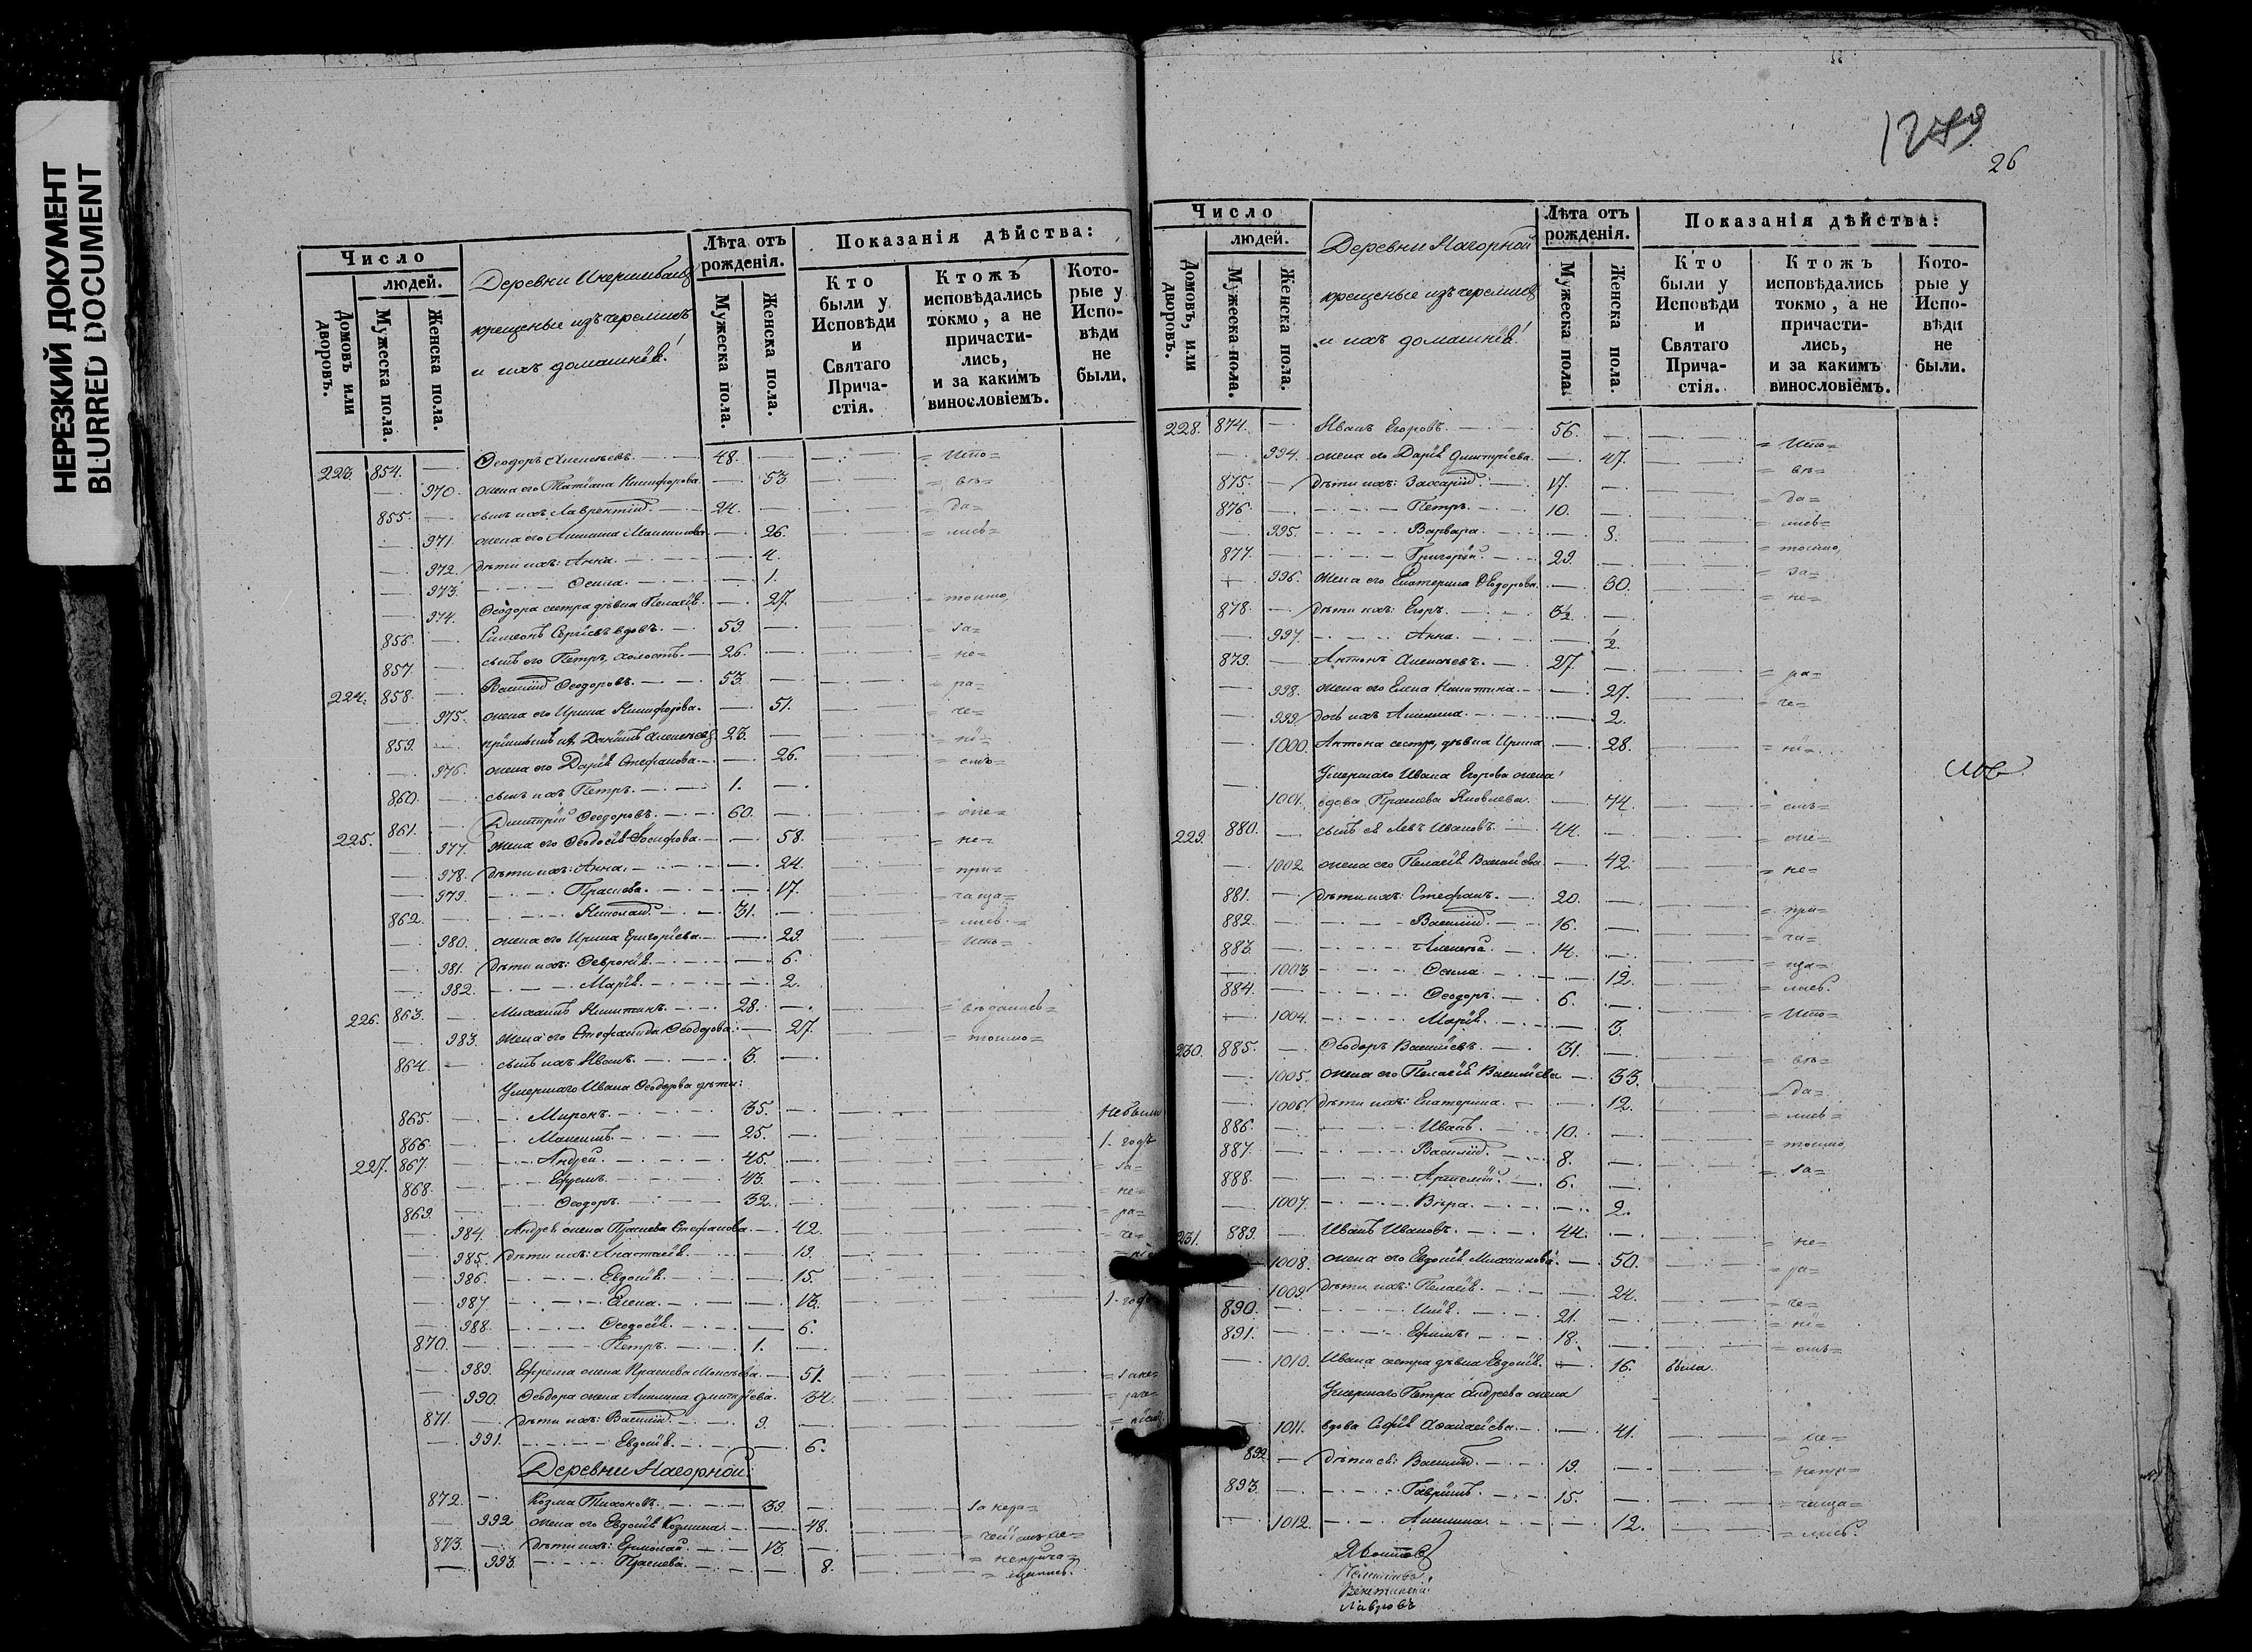 НЕРЕЗКИЙ ДОКУМЕНТ
BLURRED DOCUMENT
1279
26
Число
людей.
Домовъ или дворовъ.
Мужеска пола.
Женска пола.
Деревни
крещеные изъ черемисъ
и ихъ домашніе:
Лѣта отъ рожденія.
Мужеска пола.
Женска пола.
Показанія дѣйства:
Кто были у Исповѣди и Святаго Причастія.
Ктожъ исповѣдались токмо, а не причастились, и за какимъ винословіемъ.
Которые у Исповѣди не были.
223. 854. — Ѳеодоръ Алексѣевъ. 48. — = Испо=
— 970. жена его Татіана Никифорова. — 53. = вѣ=
855. — сынъ ихъ Лаврентій. 24. — = да=
— 971. жена его Акилина — 26. = лись=
— 972. дѣти ихъ: Анна. — 4.
— 973. — 1.
— 974. Ѳеодора сестра дѣвка Пелагія. — 27. = токмо,
856. — Симеонъ Сергіевъ вдовъ. 59. — = за=
857. — сынъ его Петръ, холостъ. 26. — = не=
224. 858. — Василій Ѳеодоровъ. 53. — = ра=
— 975. жена его Ирина Никифорова. — 51. = че=
859. — Даніилъ Алексѣевъ 23. — = ні=
— 976. жена его Дарія Стефанова. — 26. = емъ=
860. — сынъ ихъ Петръ. 1. —
225. 861. — Димитрій Ѳеодоровъ. 60. —
— 977. жена его Ѳеодосія Іосифова. — 58. = не=
— 978. дѣти ихъ: Анна. — 24. = при=
— 979. Праскева. — 17. = чаща=
862. — Николай. 31. — = лись. =
— 980. жена его Ирина Григоріева. — 29. = Испо=
— 981. дѣти ихъ: Ѳевронія. — 6.
— 982. Марія. — 2.
226. 863. — Михаилъ Никитинъ. 28. — = вѣдались=
— 983. жена его Стефанида Ѳеодорова. — 27. = токмо=
864. — сынъ ихъ Иванъ. 3. —
Умершаго Ивана Ѳеодорова дѣти:
865. — Миронъ. 35. — небыли
866. — Максимъ. 25. — 1. годъ
227. 867. — Андрей. 45. — = за=
868. — Ефремъ. 43. — = не=
869. — Ѳеодоръ. 32. — = ра=
— 984. Андрея жена Праскева Стефанова. — 42. = че=
— 985. дѣти ихъ: Анастасія. — 19.
— 986. Евдокія. — 15.
— 987. Елена. — 13. 1. годъ
— 988. Ѳеодосія. — 6.
870. — Петръ. 1. —
— 989. Ефрема жена Праскева Моисеева. — 51. = зане=
— 990. Ѳеодора жена Акилина Димитріева. 34. = раче=
871. — дѣти ихъ: Василій. 9. —
— 991. Евдокія. — 6.
Деревни Нагорной:
872. — Козма Тихоновъ. 39. — за нера=
— 992. жена его Евдокія Козмина. — 48.
873. — дѣти ихъ: Ермолай. 13. — = неприча=
— 993. Праскева. — 8. = щались.
Число
людей.
Домовъ, или дворовъ.
Мужеска пола.
Женска пола.
Деревни Нагорной
крещеные изъ черемисъ
и ихъ домашніе:
Лѣта отъ рожденія.
Мужеска пола.
Женска пола.
Показанія дѣйства:
Кто были у Исповѣди и Святаго Причастія.
Ктожъ исповѣдались токмо, а не причастились, и за какимъ винословіемъ.
Которые у Исповѣди не были.
228. 874. — Иванъ Егоровъ. 56. — = Испо=
— 994. жена его Дарія Димитріева. — 47. = вѣ=
875. — дѣти ихъ: Захарій. 17. — = да=
876. — Петръ. 10. — = лись=
— 995. Варвара. — 8. = токмо,
877. — Григорій. 29. — = за=
— 996. жена его Екатерина Ѳеодорова. — 30. = не=
878. — дѣти ихъ: Егоръ. 3½. —
— 997. Анна. — ½.
879. — Антонъ Алексѣевъ. 27. — = ра=
— 998. жена его Елена Никитина. — 27. = че=
— 999. дочь ихъ Акилина. — 2.
— 1000. Антона сестра, дѣвка Ирина. — 28. = ні=
Умершаго Ивана Егорова жена
— 1001. вдова Праскева Яковлева. — 74. = емъ=
229. 880. — сынъ ея Левъ Ивановъ. 44. —
— 1002. жена его Пелагія Васильева. — 42. = не=
881. — дѣти ихъ: Стефанъ. 20. — = при=
882. — Василій. 16. — = ча=
883. — Алексѣй. 14. — = ща=
— 1003. — 12. = лись.
884. — Ѳеодоръ. 6. — = Испо=
— 1004. Марія. — 3.
230. 885. — Ѳеодоръ Васильевъ. 31. — = вѣ=
— 1005. жена его Пелагія Васильева — 33. = да=
— 1006. дѣти ихъ: Екатерина. — 12. = лись=
886. — Иванъ. 10. — = токмо,
887. — Василій. 8. — = за=
888. — 6. —
— 1007. Вѣра. — 2.
231. 889. — Иванъ Ивановъ. 44. — = не=
— 1008. жена его Евдокія Михаилова. — 50. = ра=
— 1009. дѣти ихъ: Пелагія. — 24. = че=
890. — Илія. 21. — = ні=
891. — Ефимъ. 18. — = емъ=
— 1010. Ивана сестра дѣвка Евдокія. — 16. была.
Умершаго Петра Андреева жена
— 1011. вдова Софія — 41. = не=
892. — дѣти ея: Василій. 19. —
893. — Гавріилъ. 15. — = чаща=
— 1012. Акилина. — 12. = лись.
Лавровъ